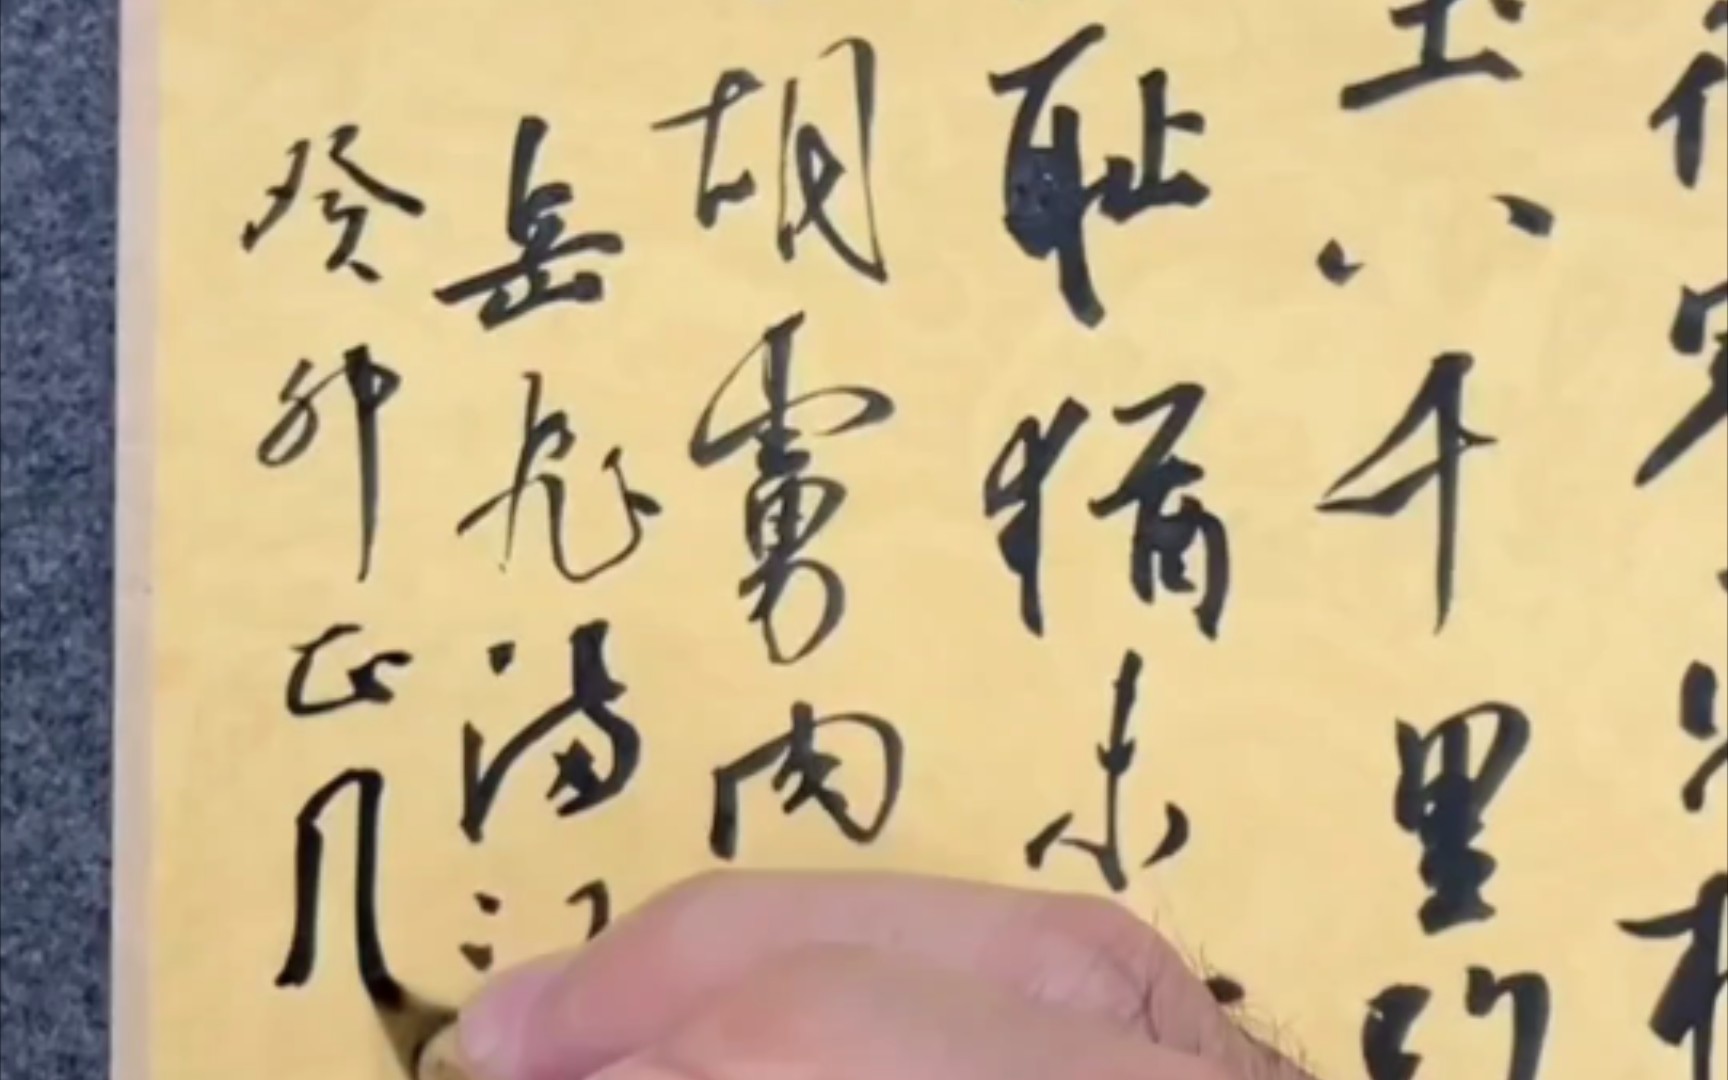 土八千里路
耻犹未
胡虏肉
岳飞满江
癸卯正月